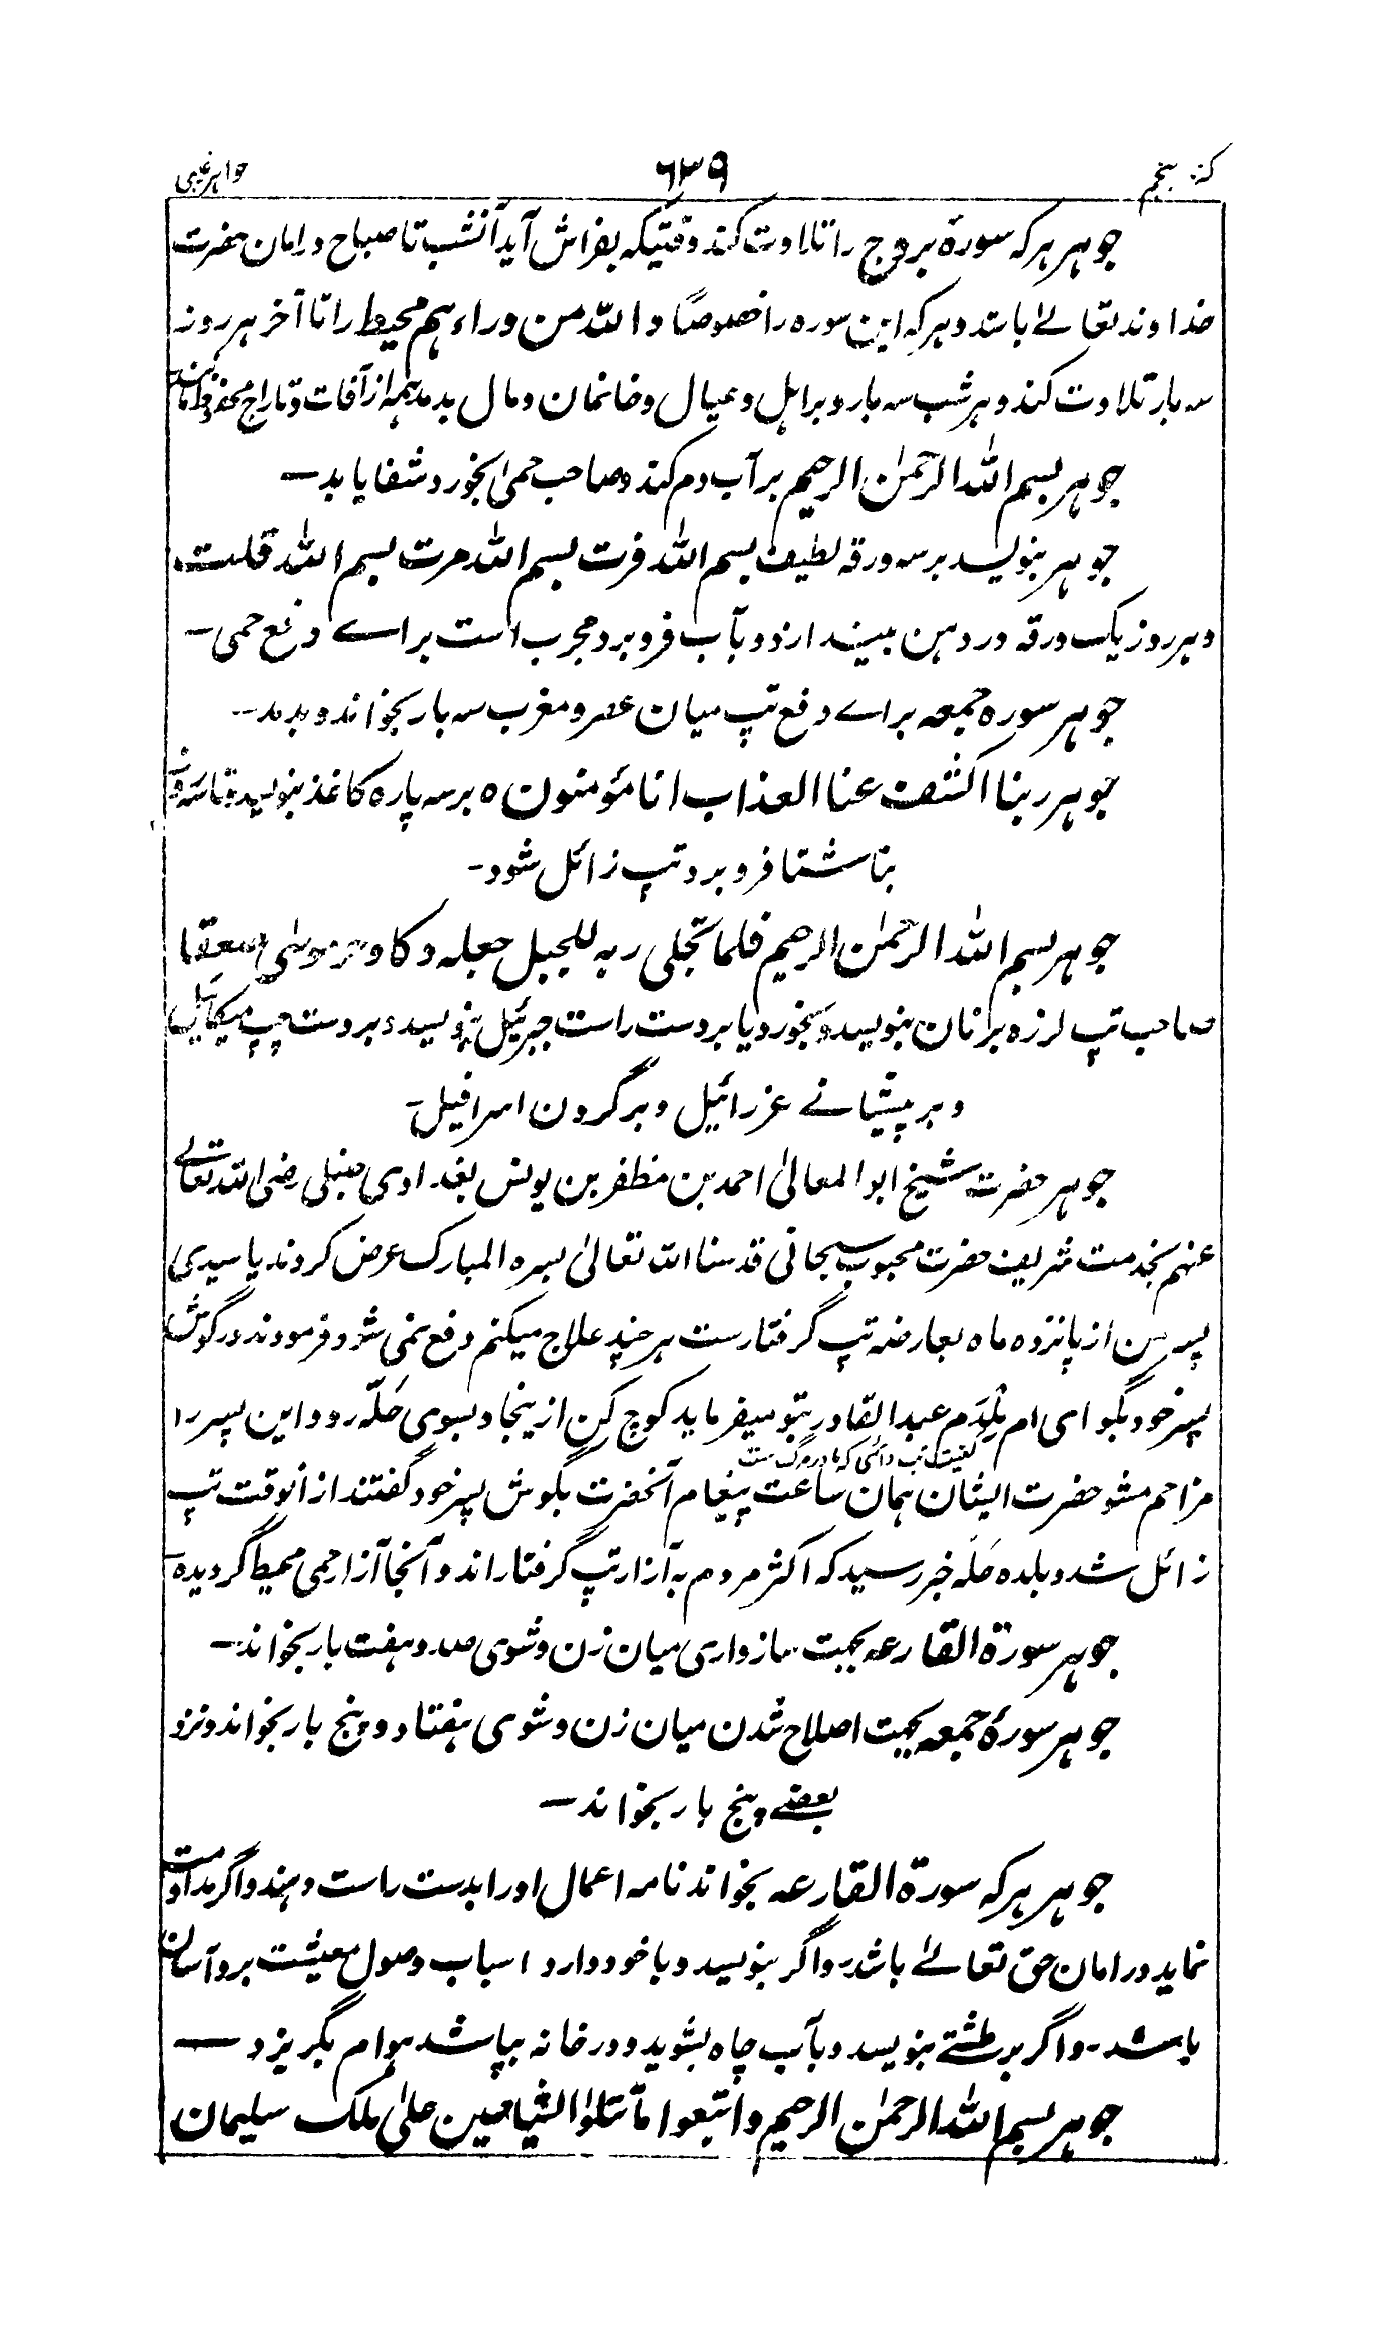 کنز پنجم ۶۳۹ جواهر غیبی
جوہر ہرکہ سورۂ بروج را تلاوت کند وقتیکہ بفراش آید آنشب تا صباح در امان حضرت
خداوند تعالےٰ باشد و ہرکہ این سورہ را خصوصًا و اللہ من وراءہم محیط را تا آخر ہر روز
سہ بار تلاوت کند و ہر شب سہ بار و بر اہل و عیال و خانمان و مال بدمد ہمہ از آفات و تاراج محفوظ مانند
جوہر بسم اللہ الرحمٰن الرحیم بر آب دم کند و صاحب حمیٰ بخورد شفا یابد —
جوہر بنویسد بر سہ ورقہ لطیف بسم اللہ فرت بسم اللہ مرت بسم اللہ قلت
و ہر روز یک ورقہ در دہن بیندازد و بآب فرو برد مجرب است براے دفع حمی —
جوہر سورہ جمعہ براے دفع تپ میان عصر و مغرب سہ بار بخواند و بدمد —
جوہر ربنا اکشف عنا العذاب انا مؤمنون ہ بر سہ پارہ کاغذ بنویسد و تا سہ روز
بناشتا فرو برد تپ زائل شود -
جوہر بسم اللہ الرحمٰن الرحیم فلما تجلی ربہ للجبل جعلہ دکا و خر موسٰی صعقا
صاحب تپ لرزہ بر نان بنویسد و بخورد یا بر دست راست جبرئیل بنویسد و بر دست چپ میکائیل
و بر پیشانے عزرائیل و بر گردن اسرافیل -
جوہر حضرت شیخ ابو المعالیٰ احمد بن مظفر بن یونس بغدادی حنبلی رضی اللہ تعالےٰ
عنہم بخدمت شریف حضرت محبوب سبحانی قدسنا اللہ تعالیٰ بسرہ المبارک عرض کردند یا سیدی
پسر من از پانزدہ ماہ بعارضہ تپ گرفتارست ہر چند علاج میکنم دفع نمی شود فرمودند در گوش
پسر خود بگو ای ام مِلْدَم عبد القادر بتو میفرماید کوچ کن از ینجا و بسوی حَلّہ رو و این پسر را
کنیت تپ دائمی کہ مادر مرگ ست
مزاحم مشو حضرت ایشان ہمان ساعت پیغام آنحضرت بگوش پسر خود گفتند از آنوقت تپ
زائل شد و بلدہ حَلّہ خبر رسید کہ اکثر مردم بہ آزار تپ گرفتار اند و آنجا آزار حمی محیط گردیدہ —
جوہر سورۃ القارعہ بجہت سازواری میان زن و شوی صد و ہفت بار بخواند —
جوہر سورۂ جمعہ بجہت اصلاح شدن میان زن و شوی ہفتاد و پنج بار بخواند و نزد
بعضے پنج بار بخواند —
جوہر ہرکہ سورۃ القارعہ بخواند نامہ اعمال او را بدست راست دہند و اگر مداومت
نماید در امان حق تعالےٰ باشد و اگر بنویسد و با خود دارد اسباب وصول معیشت برو آسان
باشد - و اگر بر طشتے بنویسد و بآب چاہ بشوید و در خانہ بپاشد ہوام بگریزد —
جوہر بسم اللہ الرحمٰن الرحیم واتبعوا ما تتلوا الشیاطین علیٰ ملک سلیمان